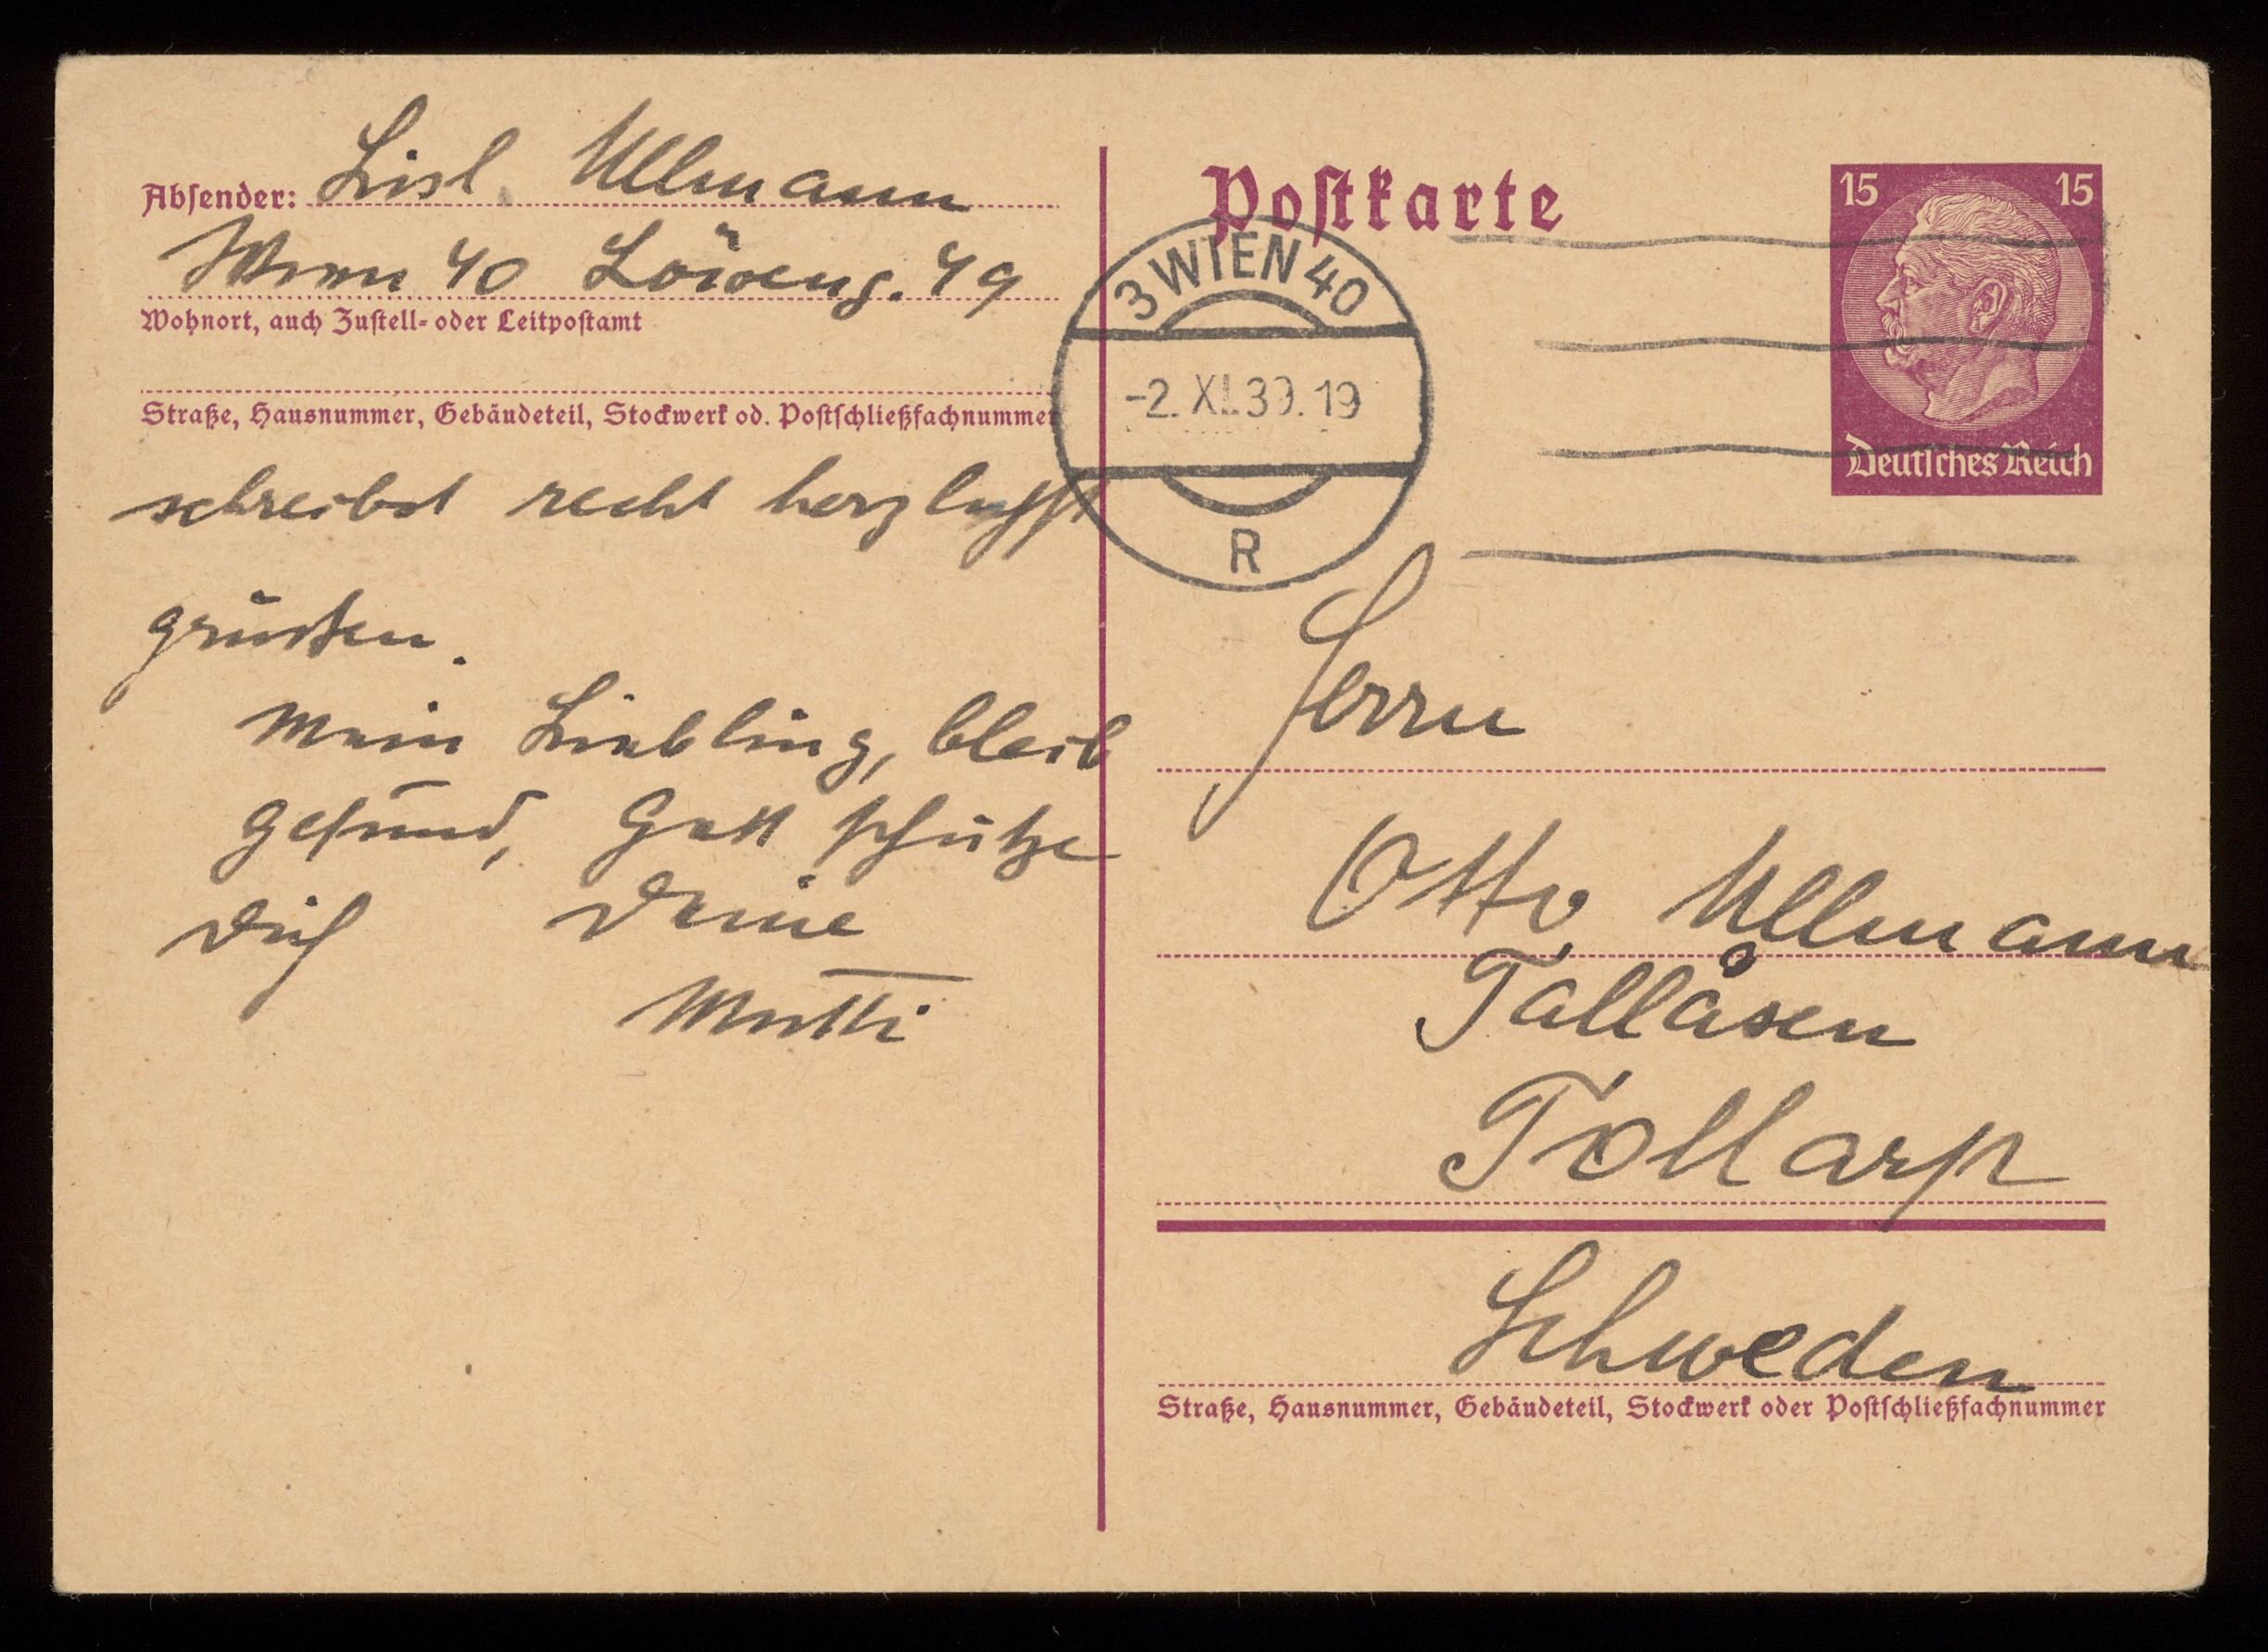 Absender: Lisl Ullmann
Wien 40 Löweng. 49
Wohnort, auch Zustell- oder Leitpostamt
Straße, Hausnummer, Gebäudeteil, Stockwerk od. Postschließfachnummer
schreibst recht herzlichst
grüssen.
Mein Liebling, bleib
gesund, Gott schütze
Dich Deine
Mutti
Postkarte
3 WIEN 40
-2. XI. 39. 19
R
15 15
Deutsches Reich
Herrn
Otto Ullmann
Tallåsen
Tollarp
Schweden
Straße, Hausnummer, Gebäudeteil, Stockwerk oder Postschließfachnummer